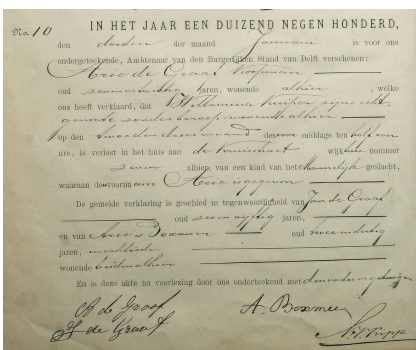 No. 10
IN HET JAAR EEN DUIZEND NEGEN HONDERD,
den derden der maand Januari is voor ons
ondergeteekende, Ambtenaar van den Burgerlijken Stand van Delft verschenen:
Arie de Graaf Koopman
oud jaren, wonende alhier, welke
ons heeft verklaard, dat Willemina Kuiper zijne echt-
genoote zonder beroep wonende alhier
op den tweeden dezer maand des middags ten half een
ure, is verlost in het huis aan de wijk nummer
zeven alhier, van een kind van het Mannelijk geslacht,
waaraan de voornaam Arie is gegeven
De gemelde verklaring is geschied in tegenwoordigheid van Jan de Graaf
oud zeven vijftig jaren,
en van Arie Boxmeer oud twee dertig
jaren,
wonende beiden alhier
En is deze akte na voorlezing door ons onderteekend met
A de Graaf
J de Graaf
A. Boxmeer